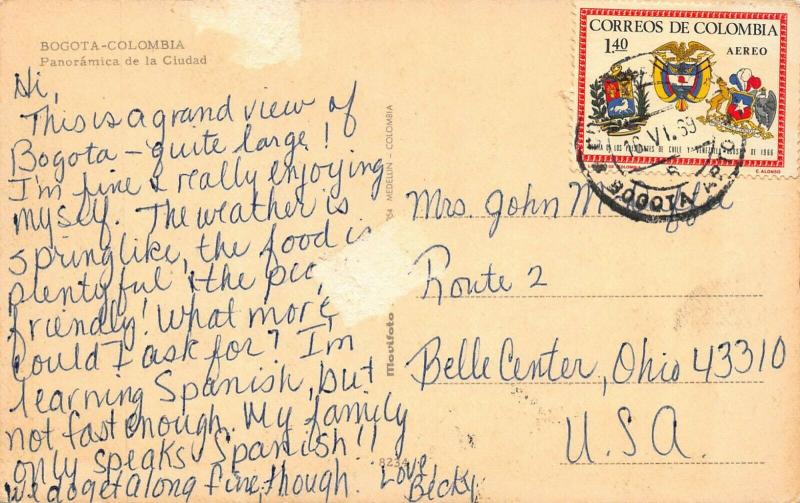 BOGOTA-COLOMBIA
Panorámica de la Ciudad
Hi,
This is a grand view of
Bogota - quite large!
I'm fine & really enjoying
myself. The weather is
springlike, the food is
plentyful & the
friendly! What more
could I ask for? I'm
learning Spanish, but
not fast enough. My family
only speaks Spanish!!
we do get along fine, though.
Love,
Becky
8234
Movifoto
MEDELLIN - COLOMBIA
CORREOS DE COLOMBIA
1.40
AEREO
DE CHILE Y VENEZUELA
DE 1966
C. ALONSO
VI.69
BOGOTA
Mrs. John
Route 2
Belle Center, Ohio 43310
U.S.A.